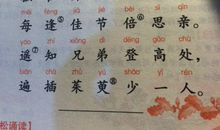 měi féng jiā jié bèi sī qīn
每逢⑤佳节倍⑥思亲。
yáo zhī xiōng dì dēng gāo chù
遥⑦知兄弟登高处,
biàn chā zhū yú shǎo yì rén
遍插茱萸⑧少一人。
松诵读】